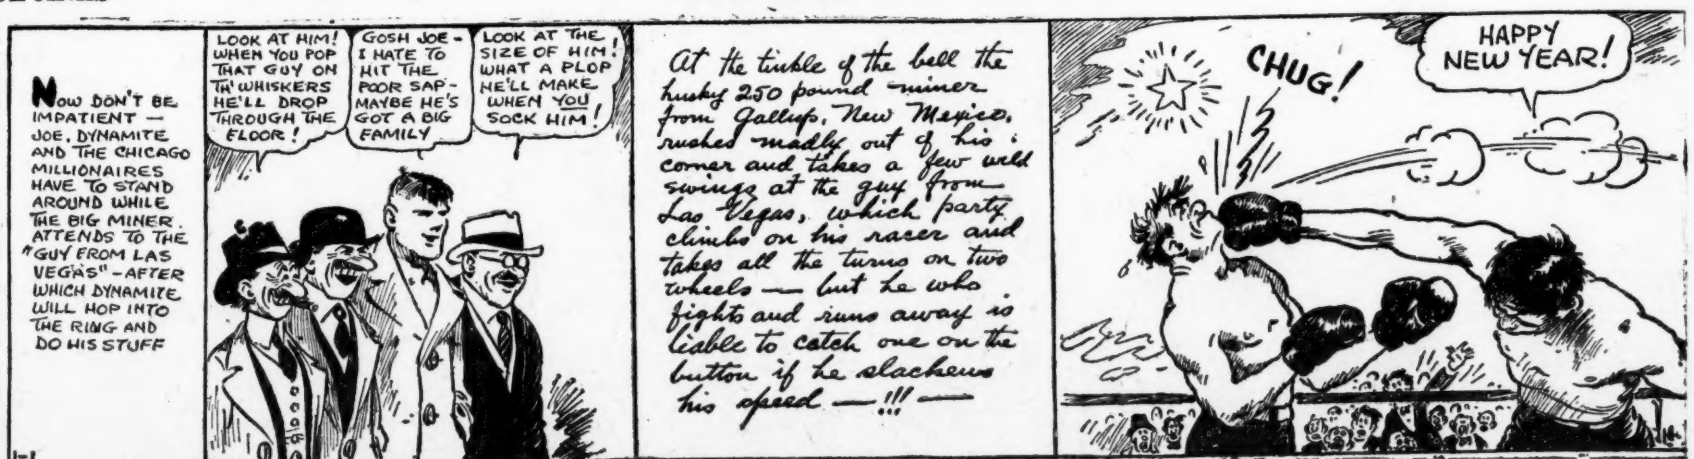 NOW DON'T BE
IMPATIENT —
JOE, DYNAMITE
AND THE CHICAGO
MILLIONAIRES
HAVE TO STAND
AROUND WHILE
THE BIG MINER
ATTENDS TO THE
"GUY FROM LAS
VEGAS" - AFTER
WHICH DYNAMITE
WILL HOP INTO
THE RING AND
DO HIS STUFF
1-1
LOOK AT HIM!
WHEN YOU POP
THAT GUY ON
TH' WHISKERS
HE'LL DROP
THROUGH THE
FLOOR!
GOSH JOE -
I HATE TO
HIT THE
POOR SAP -
MAYBE HE'S
GOT A BIG
FAMILY
LOOK AT THE
SIZE OF HIM!
WHAT A PLOP
HE'LL MAKE
WHEN YOU
SOCK HIM!
At the tinkle of the bell the
husky 250 pound miner
from Gallup, New Mexico,
rushes madly out of his
corner and takes a few wild
swings at the guy from
Las Vegas, which party
climbs on his racer and
takes all the turns on two
wheels — but he who
fights and runs away is
liable to catch one on the
button if he slackens
his speed — !!! —
CHUG!
HAPPY
NEW YEAR!